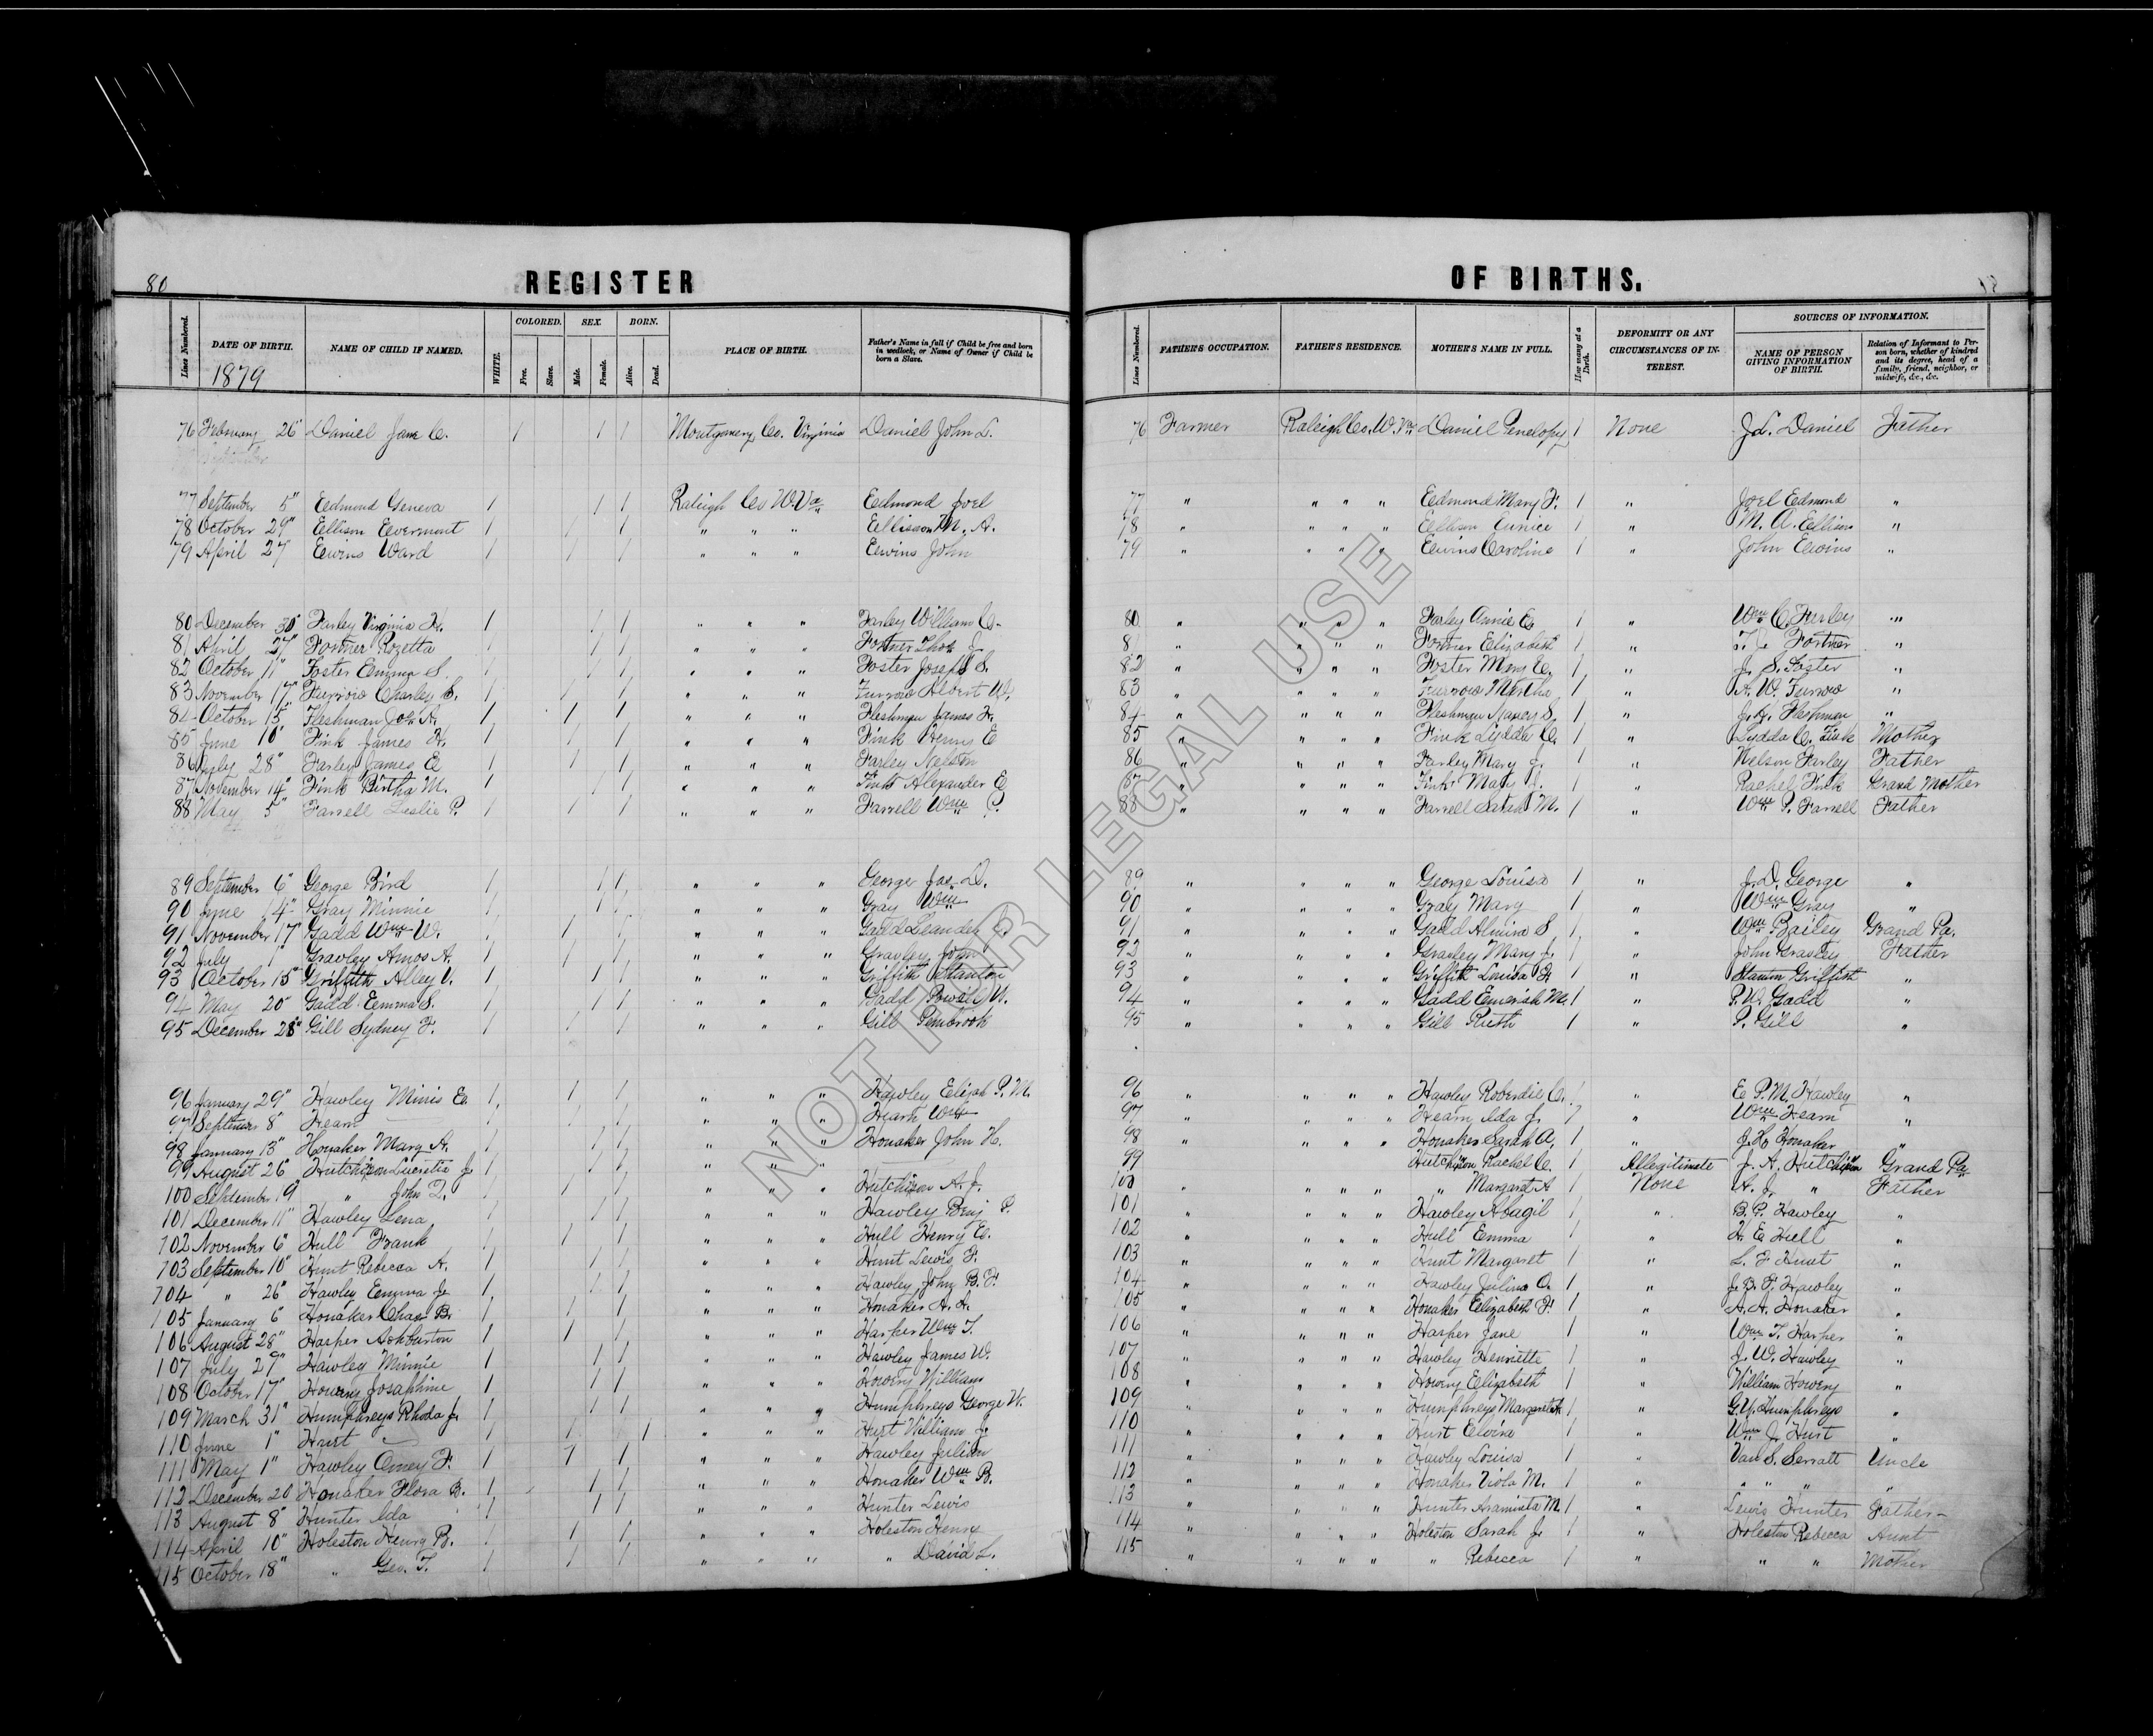 80
REGISTER
OF BIRTHS.
Lines Numbered.
DATE OF BIRTH.
1879
NAME OF CHILD IF NAMED.
WHITE.
COLORED.
Free.
Slave.
SEX.
Male.
Female.
BORN.
Alive.
Dead.
PLACE OF BIRTH.
Father's Name in full if Child be free and born in wedlock, or Name of Owner if Child be born a Slave.
Lines Numbered.
FATHER'S OCCUPATION.
FATHER'S RESIDENCE.
MOTHER'S NAME IN FULL.
How many at a Birth.
DEFORMITY OR ANY CIRCUMSTANCES OF INTEREST.
SOURCES OF INFORMATION.
NAME OF PERSON GIVING INFORMATION OF BIRTH.
Relation of Informant to Person born, whether of kindred and its degree, head of a family, friend, neighbor, or midwife, &c., &c.
76 February 26" Daniel Jane C. / / / Montgomery Co. Virginia Daniel John L. 76 Farmer Raleigh Co. W. Va Daniel Penelopy 1 None J. L. Daniel Father
77 September 5" Eedmond Geneva / / / Raleigh Co W. Va Eedmond Joel 77 " " " " Eedmond Mary F. 1 " Joel Edmond "
78 October 29" Eellison Evermont / / / " " " Eellison M. A. 78 " " " " Eellison Eunice 1 " M. A. Eellison "
79 April 27 Eewins Ward / / / " " " Eewins John 79 " " " " Eewins Caroline 1 " John Eewins "
80 December 30" Farley Virginia H. / / / " " " Farley William C. 80 " " " " Farley Annie E 1 " Wm C. Farley "
81 April 27" Fortner Rozetta / / / " " " Fortner Thos J. 81 " " " " Fortner Elizabeth 1 " T. J. Fortner "
82 October 11" Foster Emma S. / / / " " " Foster Joseph S. 82 " " " " Foster Mary E. 1 " J. S. Foster "
83 November 17" Furrow Charley S. / / / " " " Furrow Albert W. 83 " " " " Furrow Martha 1 " A. W. Furrow "
84 October 15" Fleshman Jos. A. / / / " " " Fleshman James H. 84 " " " " Fleshman Nancy S. 1 " J. H. Fleshman "
85 June 10" Fink James H. / / / " " " Fink Henry E 85 " " " " Fink Lydda C. 1 " Lydda C. Fink Mother
86 July 28" Farley James E / / / " " " Farley Nelson 86 " " " " Farley Mary J. 1 " Nelson Farley Father
87 November 14" Fink Birtha M. / / / " " " Fink Alexander E 87 " " " " Fink Mary J. 1 " Rachel Fink Grand Mother
88 May 5" Farrell Leslie P. / / / " " " Farrell Wm P. 88 " " " " Farrell Sarah M. 1 " Wm P. Farrell Father
89 September 6" George Bird / / / " " " George Jas. D. 89 " " " " George Louisa 1 " J. D. George "
90 June 14" Gray Minnie / / / " " " Gray Wm 90 " " " " Gray Mary 1 " Wm Gray "
91 November 17" Gadd Wm W. / / / " " " Gadd Leander 91 " " " " Gadd Almira S 1 " Wm Bailey Grand Pa.
92 July 1" Gravley Amos A. / / / " " " Gravley John 92 " " " " Gravley Mary J. 1 " John Gravley Father
93 October 15" Griffith Alley V. / / / " " " Griffith Stanton 93 " " " " Griffith Louisa F 1 " Stanton Griffith "
94 May 20" Gadd Emma S. / / / " " " Gadd Powell W. 94 " " " " Gadd Emeriah M. 1 " P. W. Gadd "
95 December 28" Gill Sydney F. / / / " " " Gill Pembrook 95 " " " " Gill Ruth 1 " P. Gill "
96 January 29" Hawley Minis E. / / / " " " Hawley Elijah P. M. 96 " " " " Hawley Roverdie C. 1 " E. P. M. Hawley "
97 September 8" Hearn / / / " " " Hearn Wm 97 " " " " Hearn Ada J. 1 " Wm Hearn "
98 January 13" Honaker Mary A. / / / " " " Honaker John H. 98 " " " " Honaker Sarah A. 1 " J. H. Honaker "
99 August 26" Hutchison Lucretia J. / / / " " " 99 Hutchison Rachel C. 1 Allegitimate J. A. Hutchison Grand Pa
100 September 19" " John Q. / / / " " " Hutchison A. J. 100 " " " " " Margaret A 1 None A. J. " Father
101 December 11" Hawley Lena / / / " " " Hawley Benj P. 101 " " " " Hawley Abagil 1 " B. P. Hawley "
102 November 6" Hull Frank / / / " " " Hull Henry E. 102 " " " " Hull Emma 1 " H. E Hull "
103 September 10" Hunt Rebecca A. / / / " " " Hunt Lewis F. 103 " " " " Hunt Margaret 1 " L. F Hunt "
104 " 26" Hawley Emma J. / / / " " " Hawley John B. F. 104 " " " " Hawley Julina O. 1 " J. B. F. Hawley "
105 January 6" Honaker Chas B. / / / " " " Honaker A. A. 105 " " " " Honaker Elizabeth F. 1 " A. A. Honaker "
106 August 28" Harper Ashburton / / / " " " Harper Wm T. 106 " " " " Harper Jane 1 " Wm T. Harper "
107 July 27" Hawley Minnie / / / " " " Hawley James W. 107 " " " " Hawley Henriette 1 " J. W. Hawley "
108 October 17" Howery Josaphine / / / " " " Howery William 108 " " " " Howery Elizabeth 1 " William Howery "
109 March 31" Humphreys Rhoda J. / / / " " " Humphreys George W. 109 " " " " Humphreys Margaret 1 " G. W. Humphreys "
110 June 1" Hurt / / / " " " Hurt William J. 110 " " " " Hurt Elvira 1 " Wm J. Hurt "
111 May 1" Hawley Omey F. / / / " " " Hawley Julian 111 " " " " Hawley Louisa 1 " Van S. Serratt Uncle
112 December 20 Honaker Flora B. / / / " " " Honaker Wm B. 112 " " " " Honaker Viola M. 1 " " " " "
113 August 8" Hunter Ada / / / " " " Hunter Lewis 113 " " " " Hunter Araminta M. 1 " Lewis Hunter Father
114 April 10" Holeston Henry B. / / / " " " Holeston Henry 114 " " " " Holeston Sarah J. 1 " Holeston Rebecca Aunt
115 October 18" " Geo. T. / / / " " " " David L. 115 " " " " " Rebecca 1 " " " Mother
NOT FOR LEGAL USE